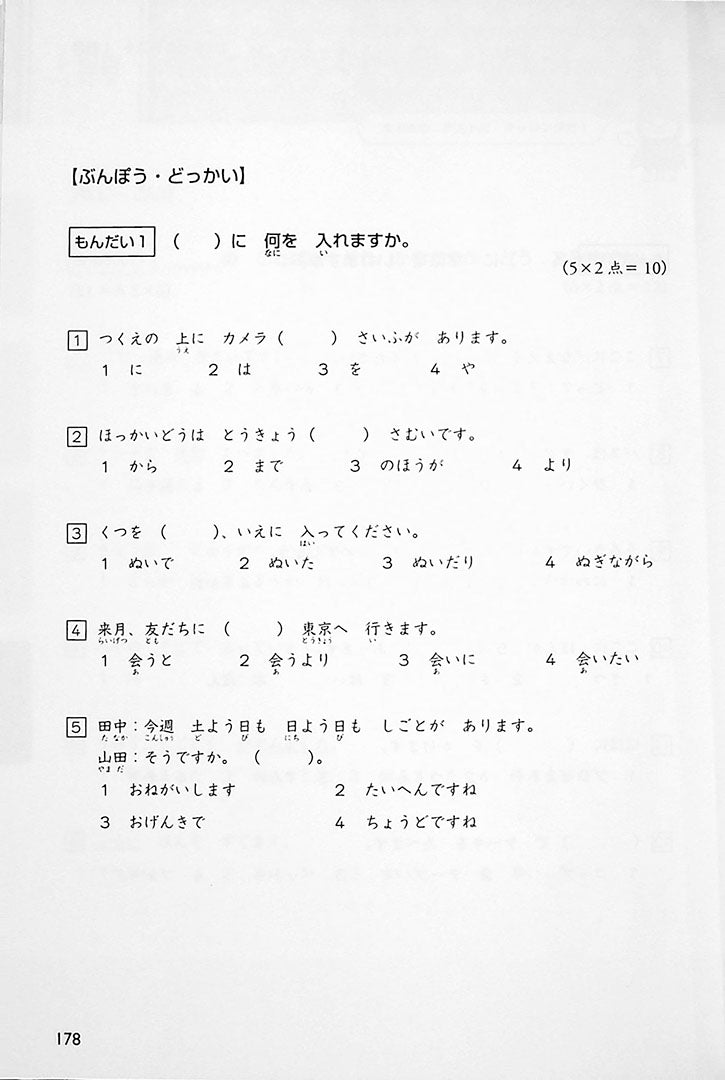 【ぶんぽう・どっかい】
もんだい1 （　　）に 何を 入れますか。
なに い
（5×2点＝10）
1 つくえの 上に カメラ（　　） さいふが あります。
うえ
1 に 2 は 3 を 4 や
2 ほっかいどうは とうきょう（　　） さむいです。
1 から 2 まで 3 のほうが 4 より
3 くつを （　　）、いえに 入ってください。
はい
1 ぬいで 2 ぬいた 3 ぬいだり 4 ぬぎながら
4 来月、友だちに （　　） 東京へ 行きます。
らいげつ とも とうきょう い
1 会うと 2 会うより 3 会いに 4 会いたい
あ あ あ あ
5 田中：今週 土よう日も 日よう日も しごとが あります。
た なか こんしゅう ど び にち び
山田：そうですか。（　　）。
やま だ
1 おねがいします 2 たいへんですね
3 おげんきで 4 ちょうどですね
178